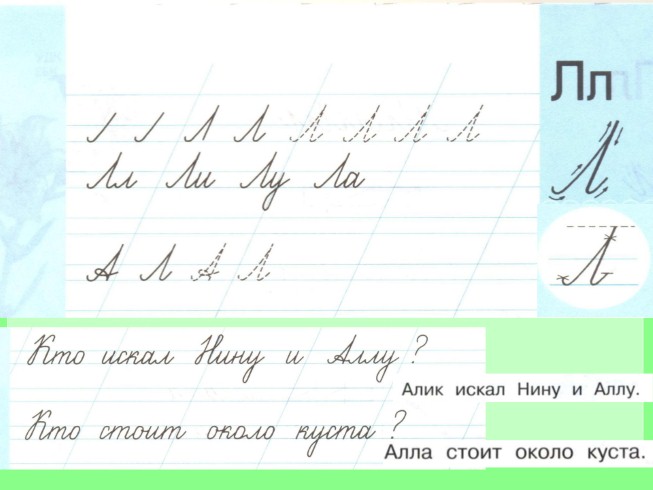 Лл
Л Л Л Л Л Л
Лл Ли Лу Ла
Л
А Л А Л
Л
Кто искал Нину и Аллу ?
Алик искал Нину и Аллу.
Кто стоит около куста ?
Алла стоит около куста.